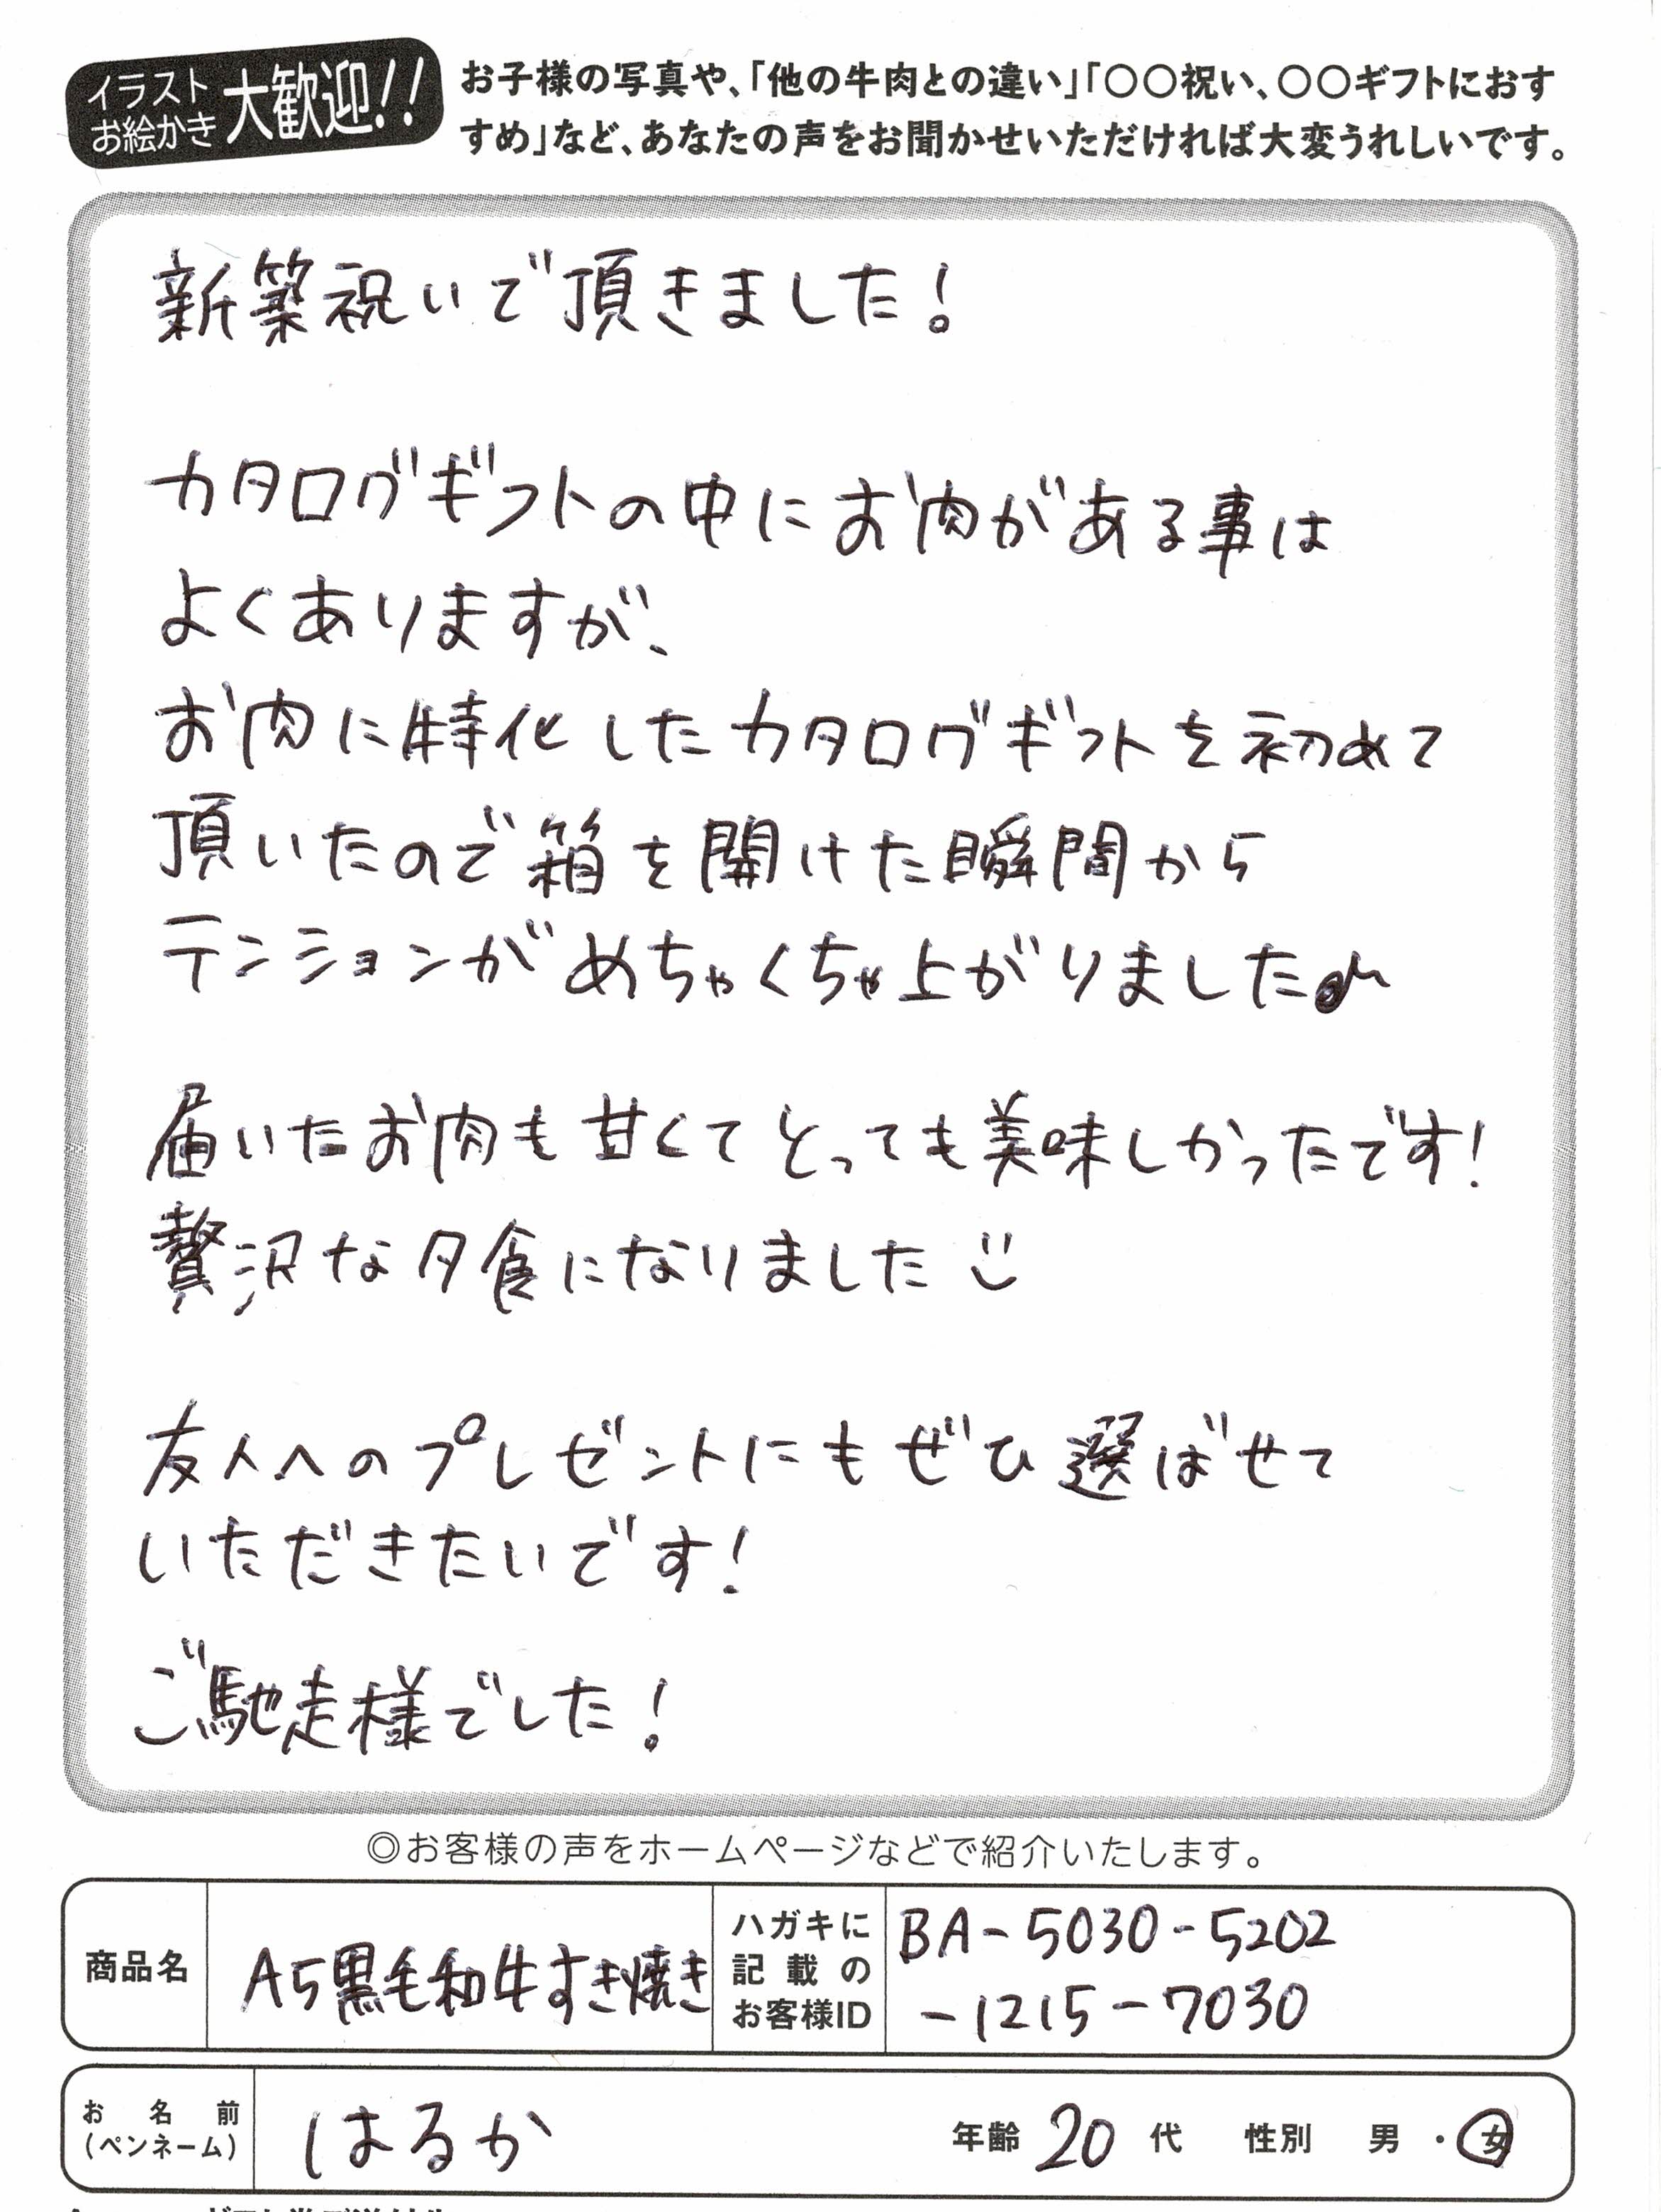 イラスト
お絵かき
大歓迎!!
お子様の写真や、「他の牛肉との違い」「〇〇祝い、〇〇ギフトにおす
すめ」など、あなたの声をお聞かせいただければ大変うれしいです。
新築祝いで頂きました!
カタログギフトの中にお肉がある事は
よくありますが、
お肉に特化したカタログギフトを初めて
頂いたので箱を開けた瞬間から
テンションがめちゃくちゃ上がりました♪
届いたお肉も甘くてとっても美味しかったです!
贅沢な夕食になりました
友人へのプレゼントにもぜひ選ばせて
いただきたいです!
ご馳走様でした!
◎お客様の声をホームページなどで紹介いたします。
商品名 A5黒毛和牛すき焼き
ハガキに
記載の
お客様ID
BA-5030-5202
-1215-7030
お名前
(ペンネーム)
はるか
年齢 20代 性別 男・女